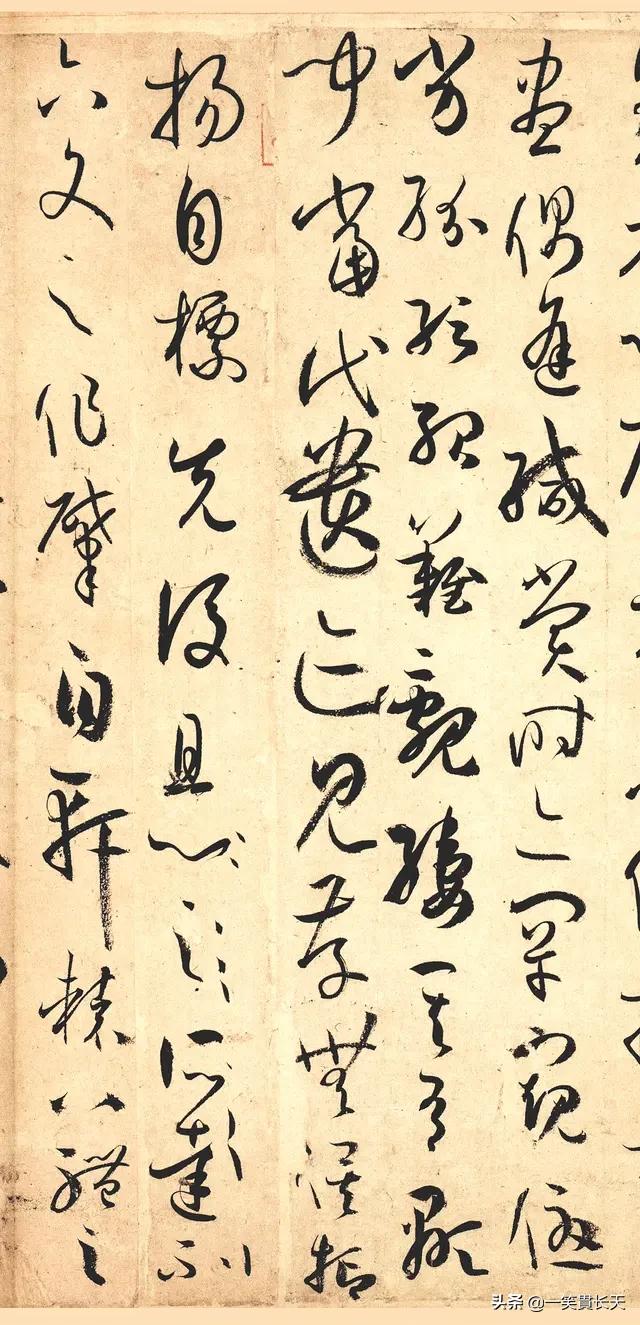 盡偶逢緘賞時亦罕窺優
劣紛紜殆難覼縷其有顯
聞當代遺迹見存無俟抑
揚自標先後且心之所達不
六文之作肇自軒轅八體之
头条 @一笑貫长天